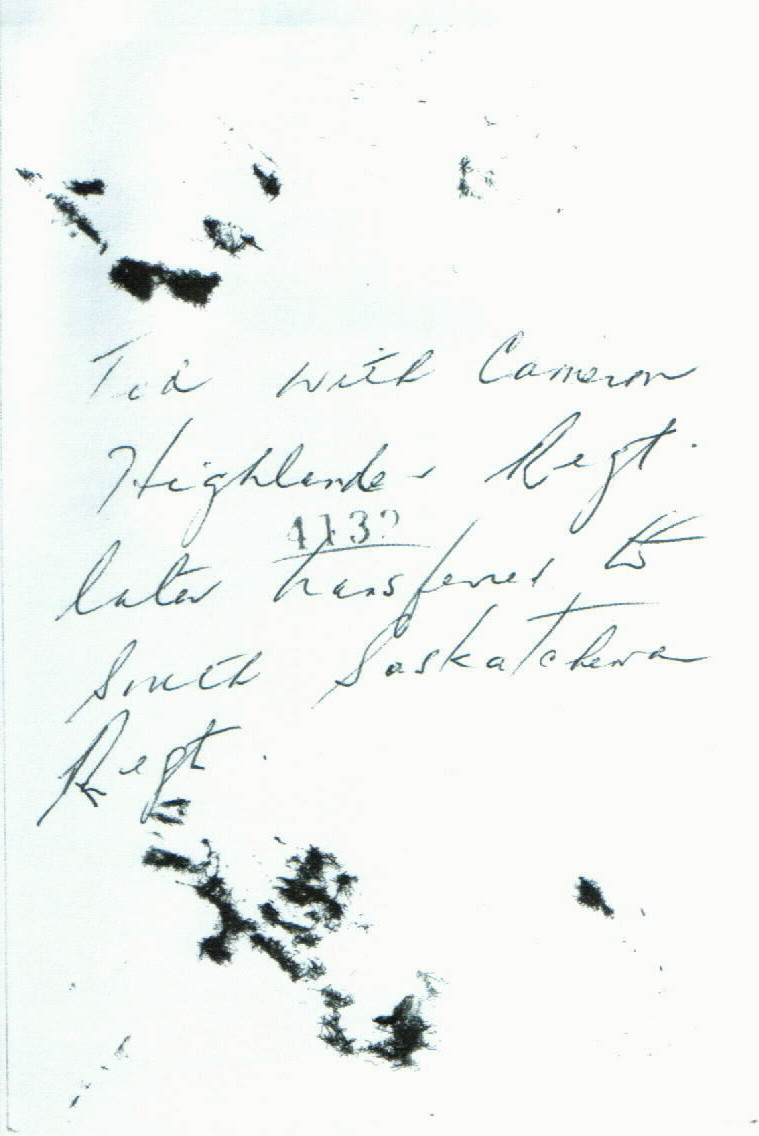 Ted with Cameron
Highlander Regt.
4132
later transferred to
South Saskatchewan
Regt.